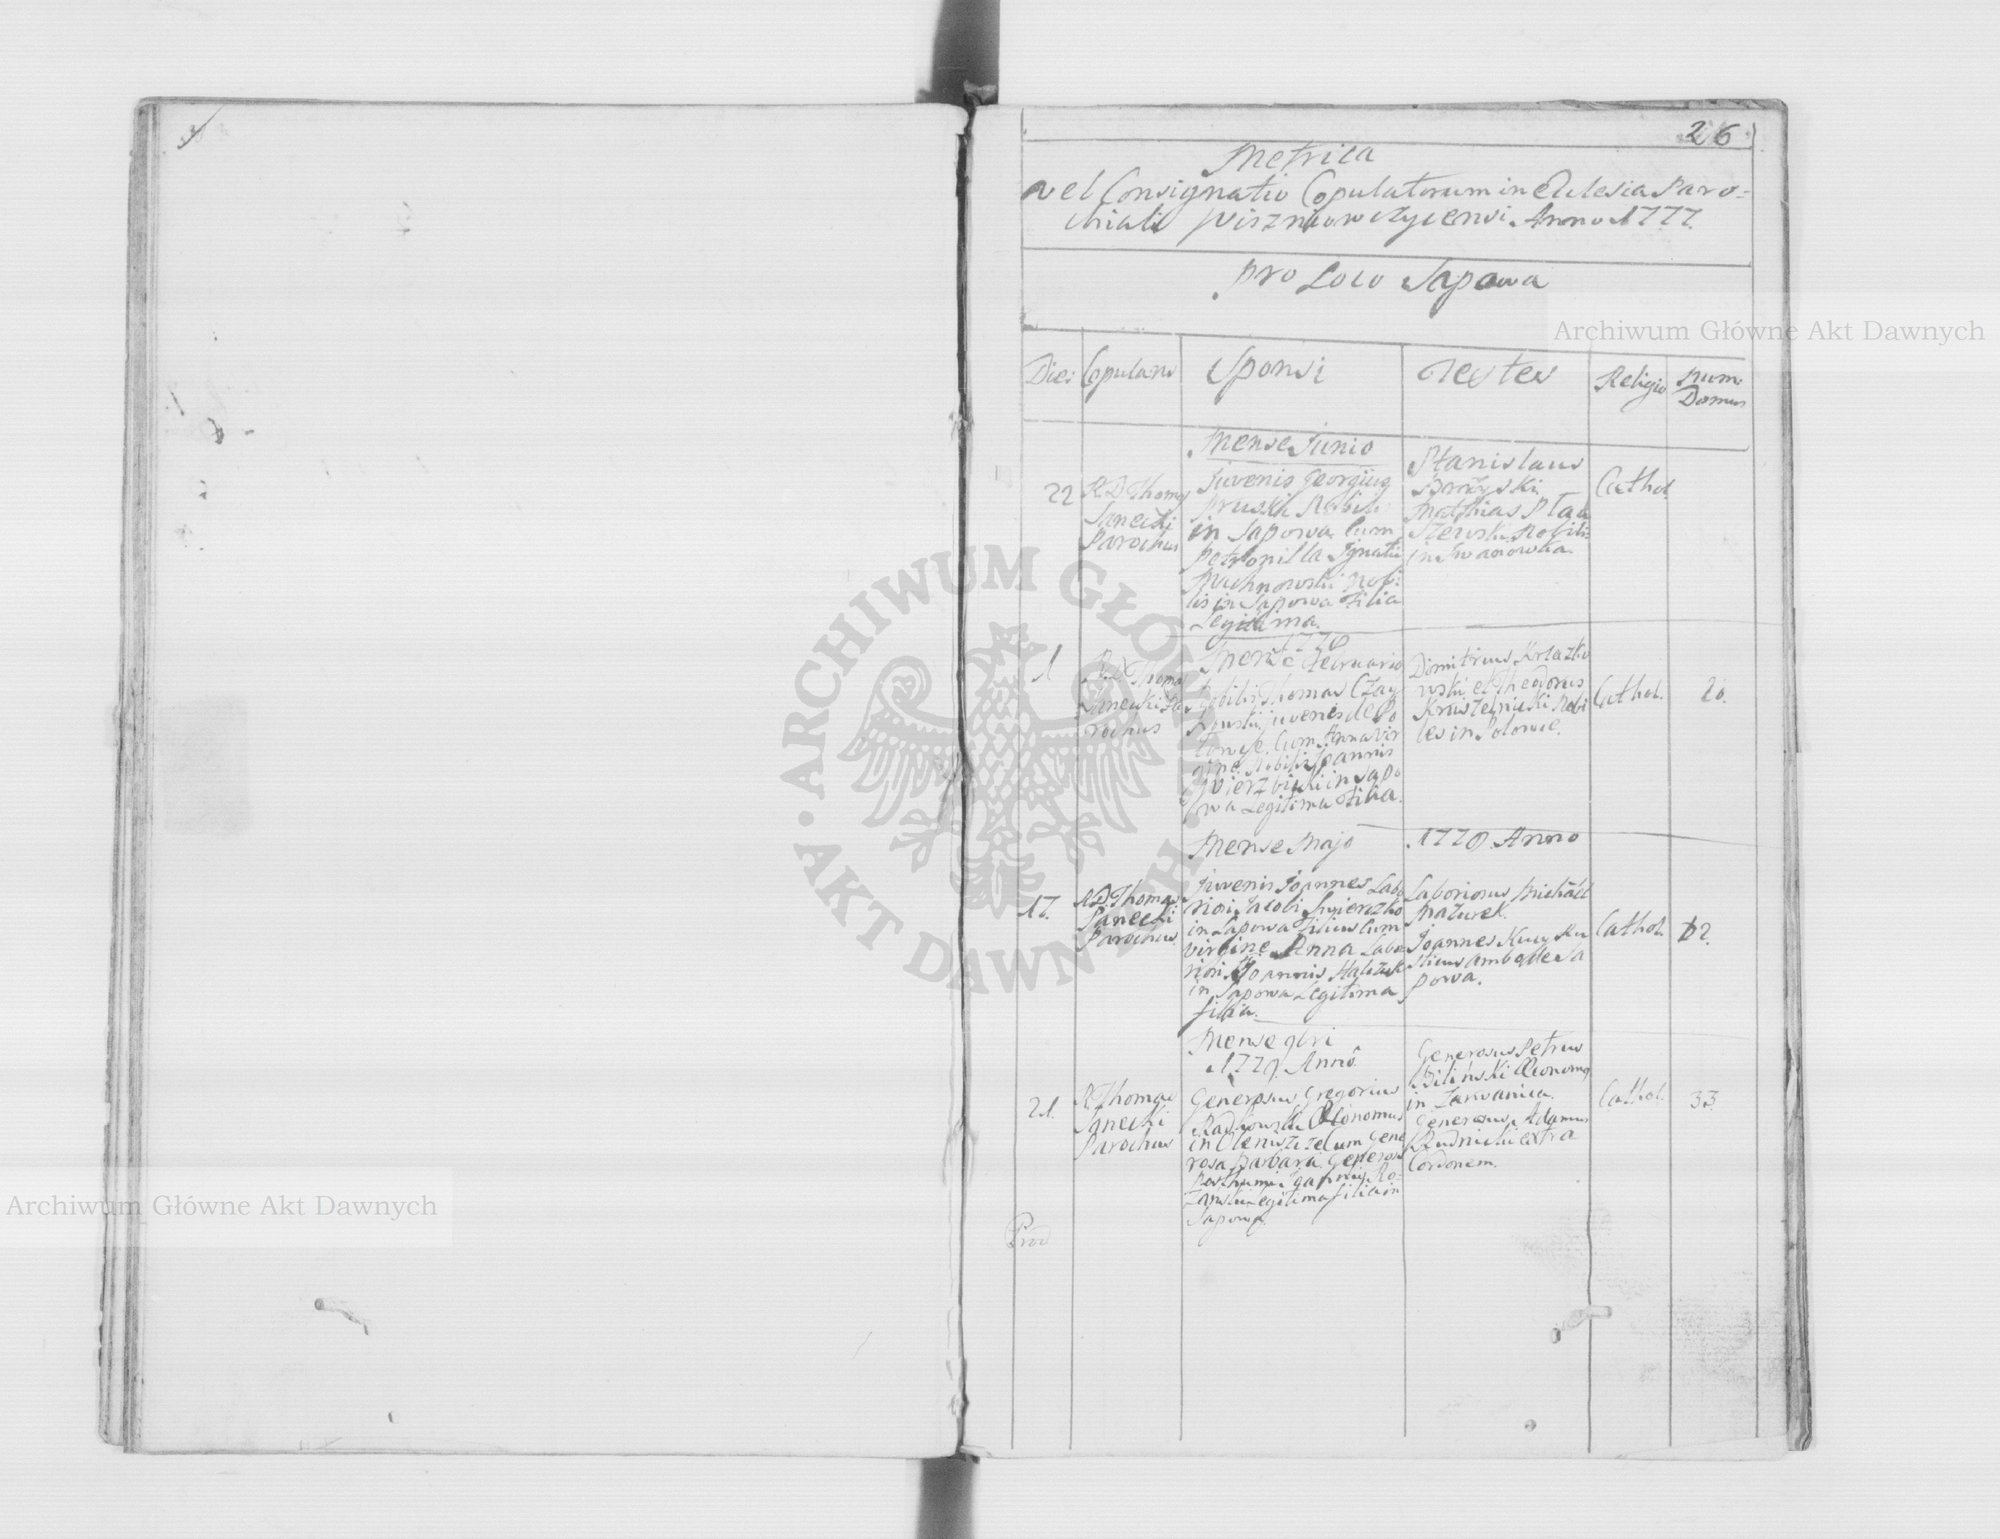 26
Metrica
vel Consignatio Copulatorum in Eclesia Paro-
chiali Wiszniowczycensi Anno 1777.
pro Loco Sapowa
Dies
Copulans
Sponsi
Testes
Religio
Num:
Domus
Mense Junio
22
R.D Thomas
Janecki
Parochus
Juvenis Georgius
Pruski Nobilis
in Sapowa Cum
Petronilla Ignatii
Machnowski Nobi-
lis in Sapowa Filia
Legitima.
Stanislaus
Matthias
Nobilis
in Iwanowka.
Cathol.
1778
Mense Februario
1
R.D Thomas
Janecki Pa
rochus
Nobilis Thomas Czay
kowski juvenis de
Cum Anna vir
gine Nobilis Joannis
Wierzbicki in Sapo
wa Legitima Filia.
Dimitrius
wski et Theodorus
Kruszelnicki Nobi
les in
Cathol.
26.
Mense Majo
1779. Anno
17.
R.D. Thomas
Janecki
Parochus
Juvenis Joannes Labo
riosi Jacobi Swierczko
in Sapowa Filius Cum
virgine Anna Labo
riosi Joannis
in Sapowa Legitima
filia.
Laboriosus Michael
Mazurek.
Joannes Kucy Ru
sticus ambo de Sa
powa.
Cathol.
12.
Mense 9bri
1779. Anno
21.
R. Thomas
Janecki
Parochus
Generosus Gregorius
Oeconomus
in Cum Gene
rosa Barbara Generosi
Legitima filia in
Sapowa.
Generosus Petrus
Biliński Oeconomus
in Zarwanica.
Generosus Adamus
Rudnicki extra
Cordonem.
Cathol.
33.
Prod
Archiwum Główne Akt Dawnych
Archiwum Główne Akt Dawnych
ARCHIWUM GŁÓWNE AKT DAWNYCH